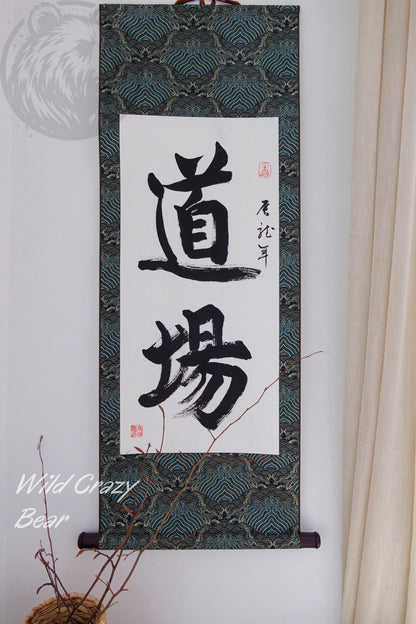 道場
龍年
Wild Crazy
Bear